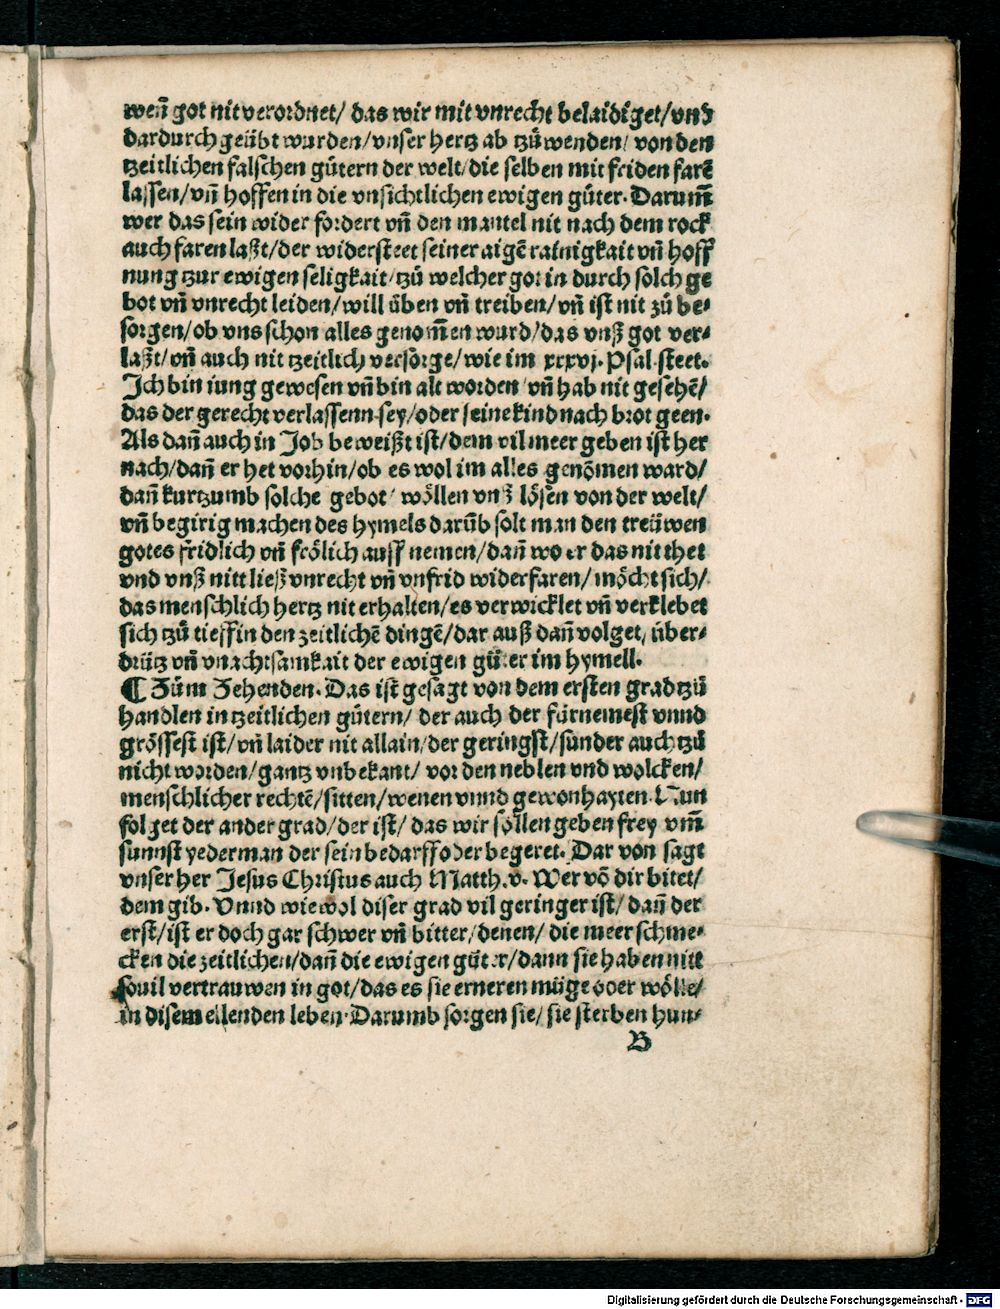 weñ got nit verordnet/ das wir mit vnrecht belaidiget/vnd
dardurch geübt wurden/vnser hertz ab tzůwenden/ von den
tzeitlichen falschen gütern der welt/die selben mit friden farẽ
lassen/vñ hoffen in die vnsichtlichen ewigen güter. Darum̃
wer das sein wider fordert vñ den mantel nit nach dem rock
auch faren laßt/der widersteet seiner aigẽ rainigkait vñ hoff
nung tzur ewigen seligkait/tzů welcher got in durch solch ge
bot vñ vnrecht leiden/will üben vñ treiben/vñ ist nit zů be⸗
sorgen/ob vns schon alles genom̃en wurd/das vnß got ver⸗
laßt/vñ auch nit tzeitlich versorge/wie im xxxvj. Psal. steet.
Ich bin iung gewesen vñ bin alt worden/vñ hab nit gesehẽ/
das der gerecht verlassenn sey/oder seine kind nach brot geen.
Als dañ auch in Job beweißt ist/dem vil meer geben ist her
nach/dañ er het vorhin/ob es wol im alles genõmen ward/
dañ kurtzumb solche gebot/ wöllen vnß lösen von der welt/
vñ begirig machen des hymels darũb solt man den treüwen
gotes fridlich vñ frölich auff nemen/dañ wo er das nit thet
vnd vnß nitt ließ vnrecht vñ vnfrid widerfaren/möcht sich/
das menschlich hertz nit erhalten/es verwicklet vñ verklebet
sich tzů tieff in den zeitlichẽ dingẽ/dar auß dañ volget, über⸗
drütz vñ vnachtsamkait der ewigen güter im hymell.
¶ Zům Zehenden. Das ist gesagt von dem ersten grad tzů
handlen in tzeitlichen gütern/ der auch der fürnemest vnnd
grössest ist/vñ laider nit allain/der geringst/sunder auch tzů
nicht worden/gantz vnbekant/ vor den neblen vnd wolcken/
menschlicher rechtẽ/sitten/wenen vnnd gewonhayten. Nun
folget der ander grad/der ist/ das wir söllen geben frey vm̃
sunnst yederman der sein bedarff oder begeret. Dar von sagt
vnser her Jesus Christus auch Matth. v. Wer võ dir bitet/
dem gib. Vnnd wiewol diser grad vil geringer ist/ dañ der
erst/ist er doch gar schwer vñ bitter/denen/ die meer schme⸗
cken die zeitlichen/dañ die ewigen güter/dann sie haben nitt
souil vertrauwen in got/das es sie erneren müge oder wölle/
in disem ellenden leben. Darumb sorgen sie/ sie sterben hun⸗
B
Digitalisierung gefördert durch die Deutsche Forschungsgemeinschaft - DFG